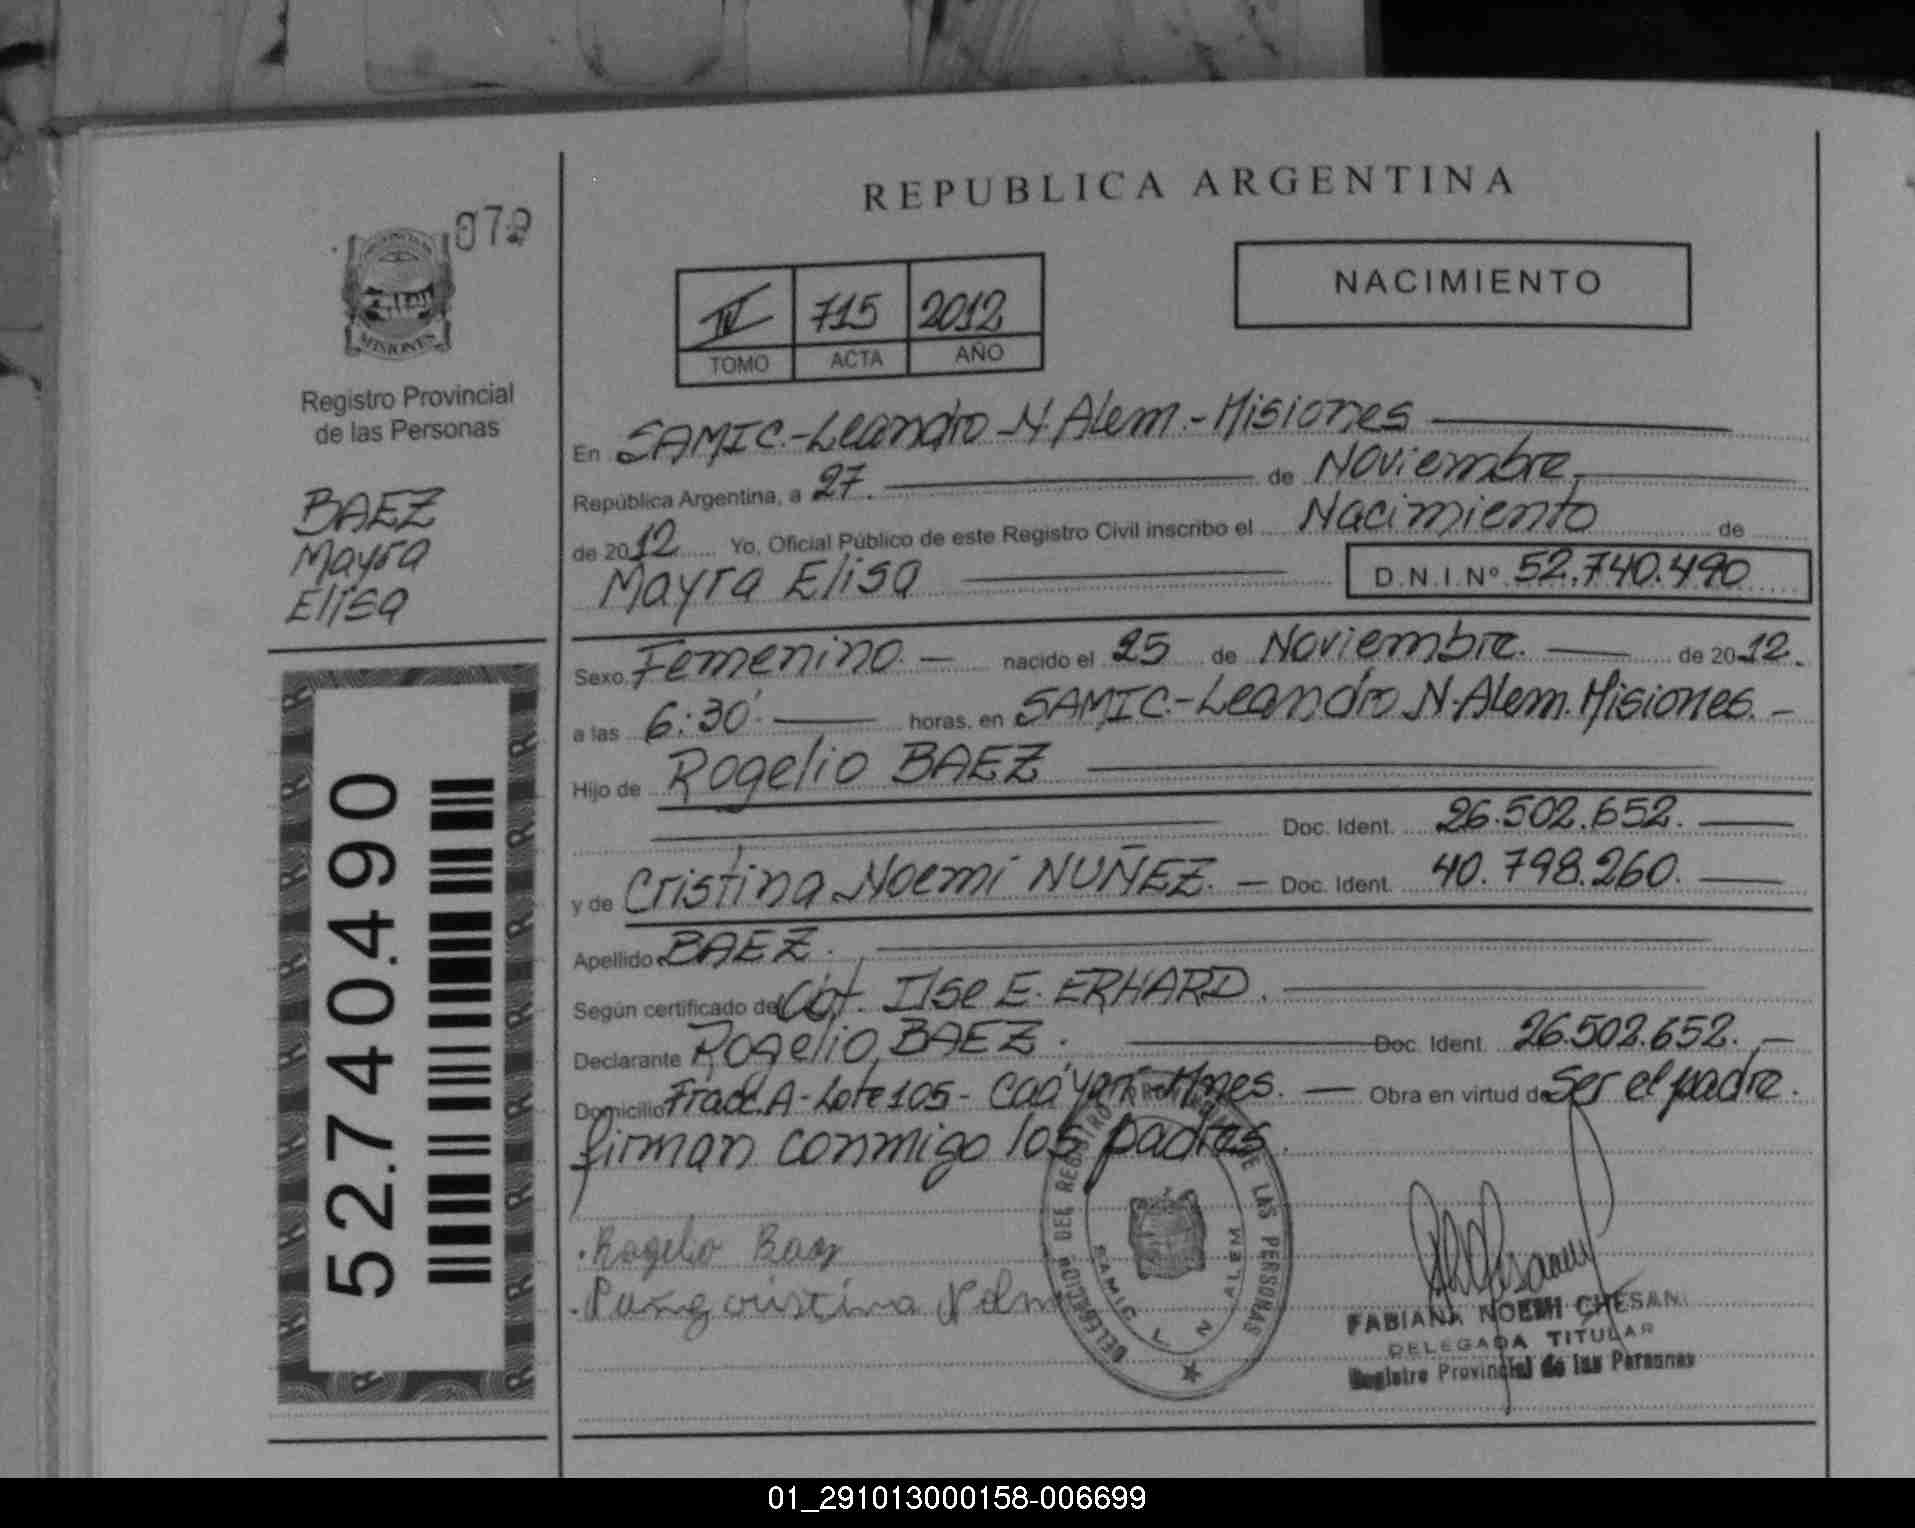 REPUBLICA ARGENTINA
079
MISIONES
Registro Provincial
de las Personas
BAEZ
Mayra
Elisa
52.740.490
IV 715 2012
TOMO ACTA AÑO
NACIMIENTO
En SAMIC.-Leandro N. Alem.-Misiones
República Argentina, a 27. de Noviembre,
de 2012 Yo, Oficial Público de este Registro Civil inscribo el Nacimiento de
Mayra Elisa D.N.I.Nº 52.740.490
Sexo Femenino. nacido el 25 de Noviembre. de 2012.
a las 6:30'. horas, en SAMIC.-Leandro N. Alem. Misiones.
Hijo de Rogelio BAEZ
Doc. Ident. 26.502.652.
y de Cristina Noemí NUÑEZ. Doc. Ident. 40.798.260.
Apellido BAEZ.
Según certificado de Obt. Ilse E. ERHARD.
Declarante Rogelio BAEZ. Doc. Ident. 26.502.652.
Domicilio Fracc. A-Lote 105- Caá Yarí Mnes. Obra en virtud de Ser el padre.
firman conmigo los padres.
Rogelio Baez
cristina
DELEGACION DEL REGISTRO DE LAS PERSONAS
SAMIC L N ALEM
FABIANA NOEMI CHESANI
DELEGADA TITULAR
Registro Provincial de las Personas
01_291013000158-006699